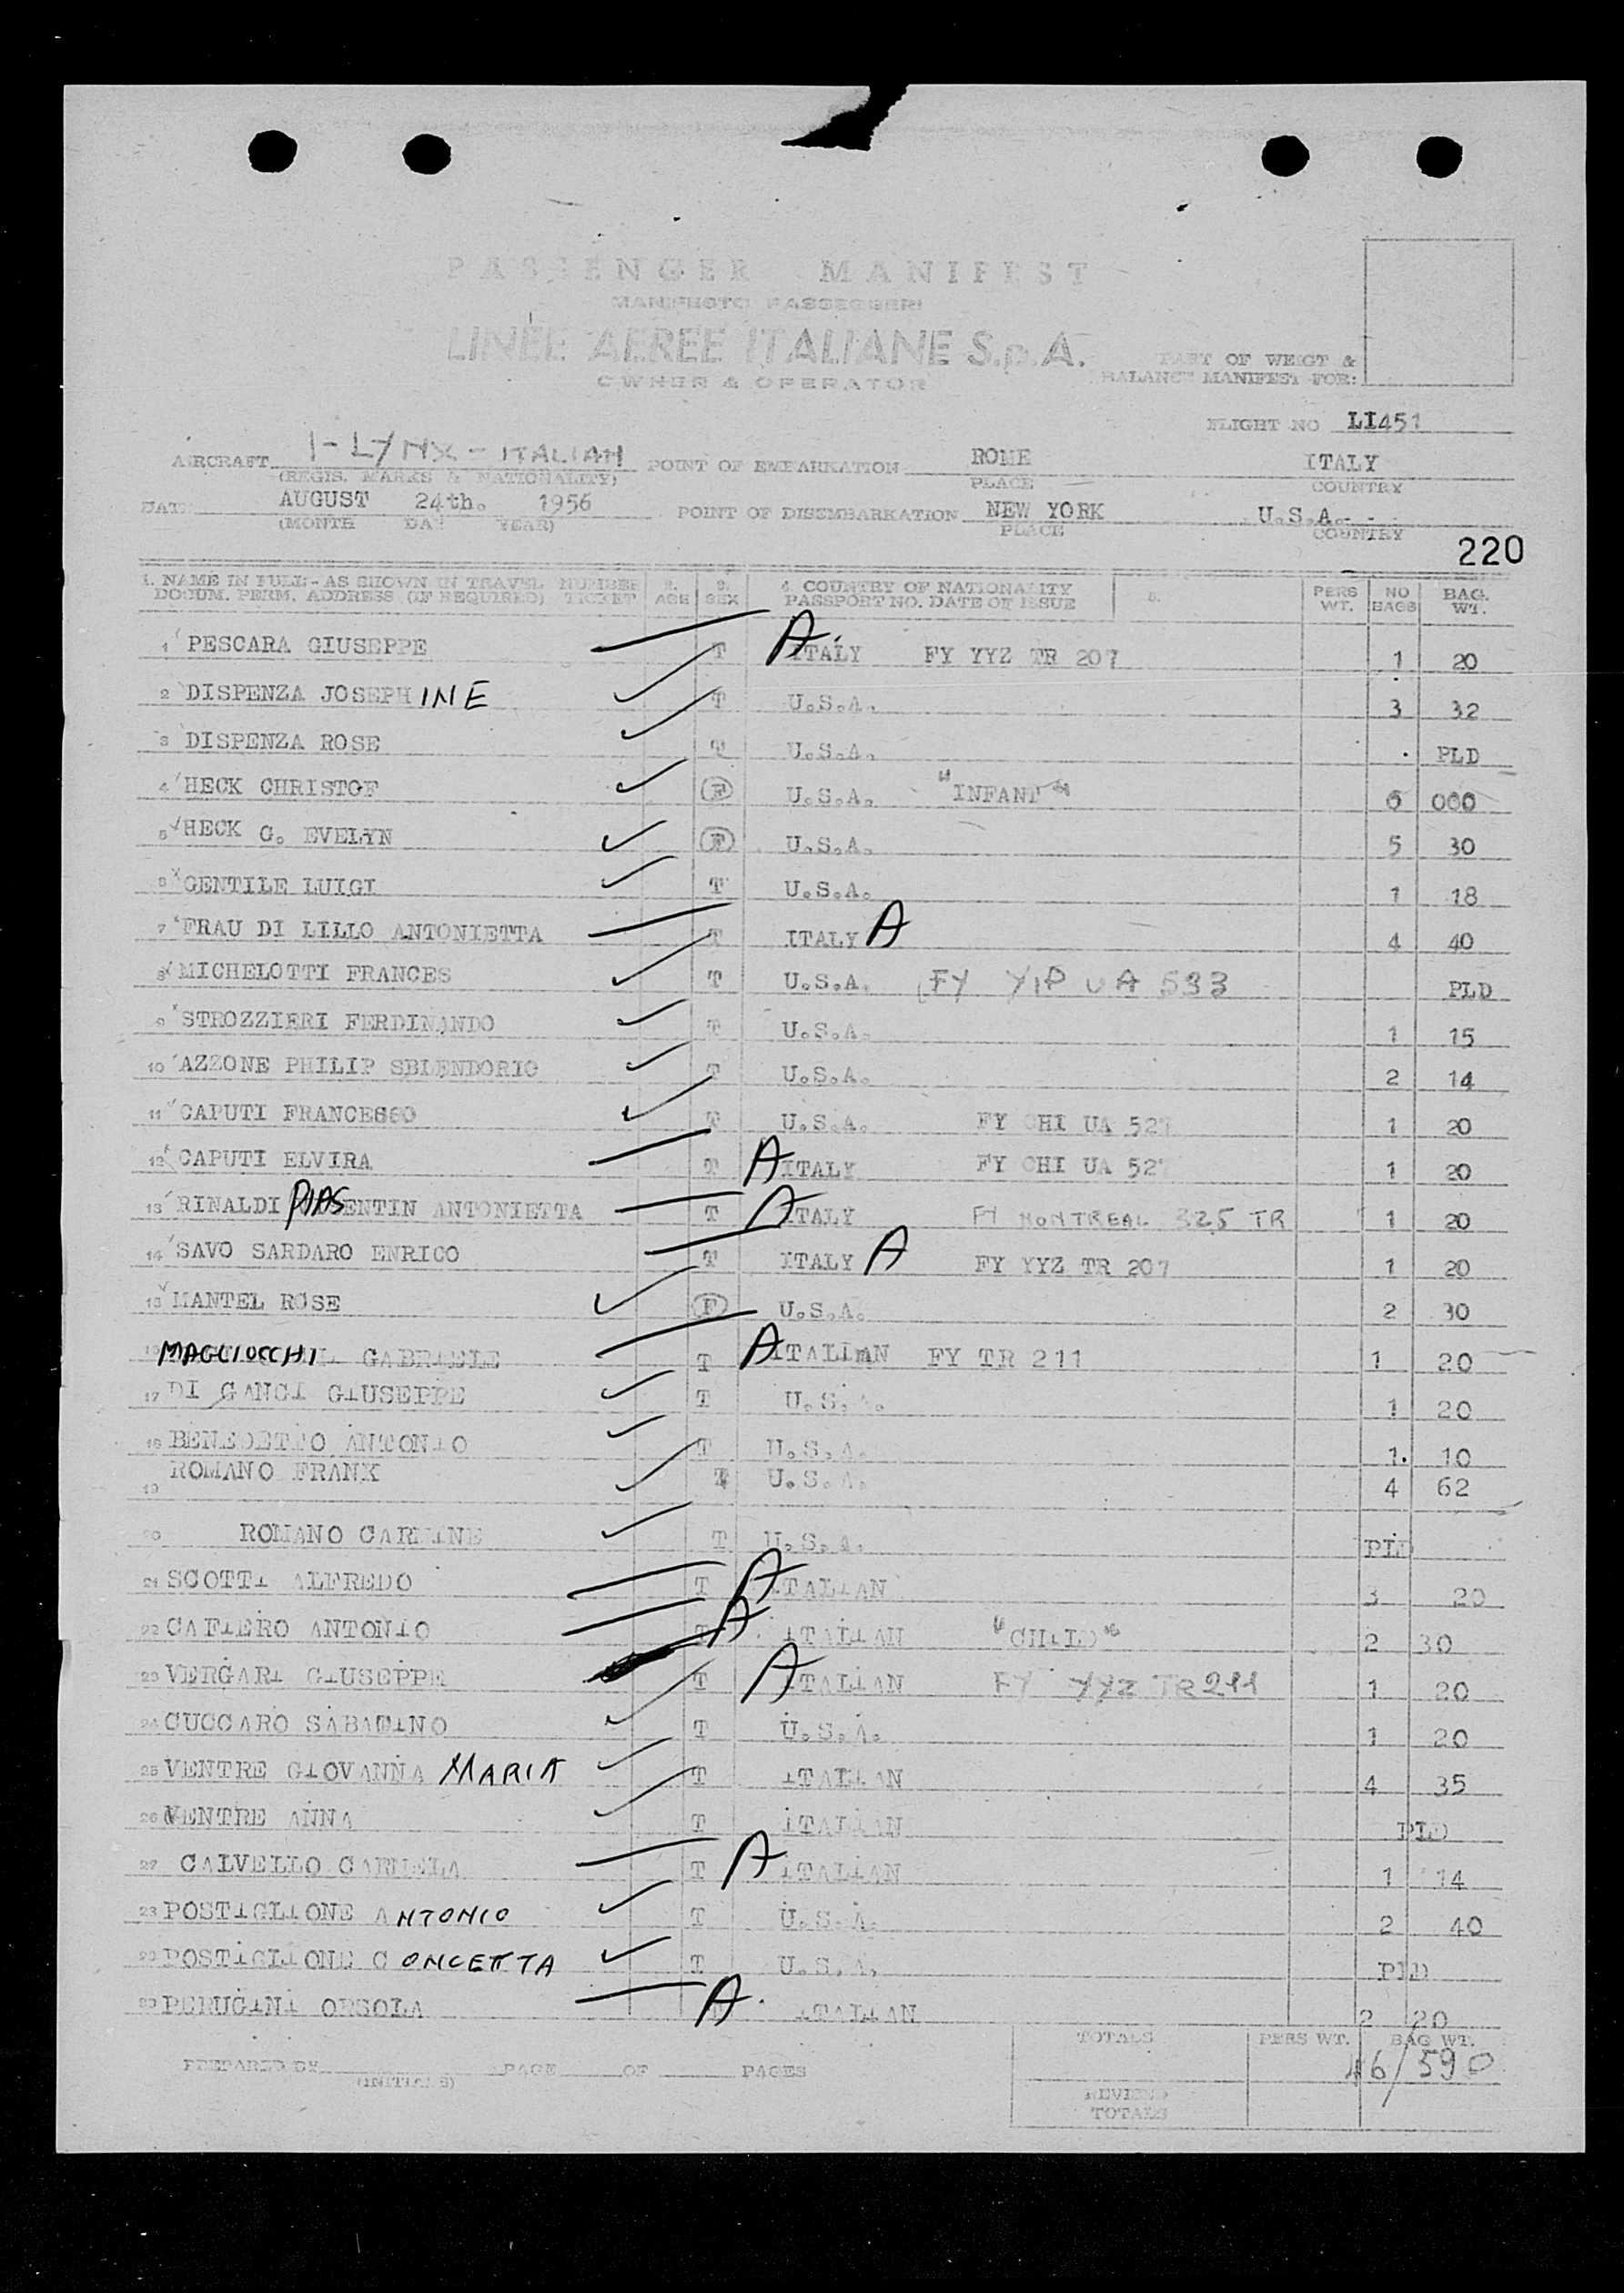 PASSENGER MANIFEST
MANIFESTO PASSEGGERI
LINEE AEREE ITALIANE S.p.A.
OWNER & OPERATOR
PART OF WEIGT &
BALANCE MANIFEST FOR:
FLIGHT NO LI451
AIRCRAFT I-LYNX - ITALIAN POINT OF EMBARKATION ROME ITALY
(REGIS. MARKS & NATIONALITY) PLACE COUNTRY
DATE AUGUST 24th. 1956 POINT OF DISEMBARKATION NEW YORK U.S.A.
(MONTH DAY YEAR) PLACE COUNTRY
220
1. NAME IN FULL - AS SHOWN IN TRAVEL NUMBER 2. 3. 4. COUNTRY OF NATIONALITY 5. PERS NO BAG.
DOCUM. PERM. ADDRESS (IF REQUIRED) TICKET AGE SEX PASSPORT NO. DATE OF ISSUE WT. BAGS WT.
1 PESCARA GIUSEPPE T A ITALY FY YYZ TR 207 1 20
2 DISPENZA JOSEPHINE T U.S.A. 3 32
3 DISPENZA ROSE T U.S.A. PLD
4 HECK CHRISTOF F U.S.A. "INFANT" 0 000
5 HECK G. EVELYN F U.S.A. 5 30
6 GENTILE LUIGI T U.S.A. 1 18
7 FRAU DI LILLO ANTONIETTA T ITALY A 4 40
8 MICHELOTTI FRANCES T U.S.A. FY YIP UA 533 PLD
9 STROZZIERI FERDINANDO T U.S.A. 1 15
10 AZZONE PHILIP SBLENDORIO T U.S.A. 2 14
11 CAPUTI FRANCESCO T U.S.A. FY CHI UA 527 1 20
12 CAPUTI ELVIRA T A ITALY FY CHI UA 527 1 20
13 RINALDI PIASENTIN ANTONIETTA T A ITALY FY MONTREAL 325 TR 1 20
14 SAVO SARDARO ENRICO T ITALY A FY YYZ TR 207 1 20
15 MANTEL ROSE F U.S.A. 2 30
16 MAGLIOCCHI GABRIELE T A ITALIAN FY TR 211 1 20
17 DI GANGI GIUSEPPE T U.S.A. 1 20
18 BENEDETTO ANTONIO T U.S.A. 1. 10
19 ROMANO FRANK T U.S.A. 4 62
20 ROMANO CARMINE T U.S.A. PLD
21 SCOTTI ALFREDO T A ITALIAN 3 20
22 CAFIERO ANTONIO T A ITALIAN "CHILD" 2 30
23 VERGARI GIUSEPPE T A ITALIAN FY YYZ TR 211 1 20
24 CUCCARO SABATINO T U.S.A. 1 20
25 VENTRE GIOVANNA MARIA T ITALIAN 4 35
26 VENTRE ANNA T ITALIAN PLD
27 CALVELLO CARMELA T A ITALIAN 1 14
28 POSTIGLIONE ANTONIO T U.S.A. 2 40
29 POSTIGLIONE CONCETTA T U.S.A. PLD
30 PERUGINI ORSOLA A ITALIAN 2 20
TOTALS PERS WT. BAG WT.
PREPARED BY PAGE OF PAGES 46/590
(INITIALS)
REVISED
TOTALS